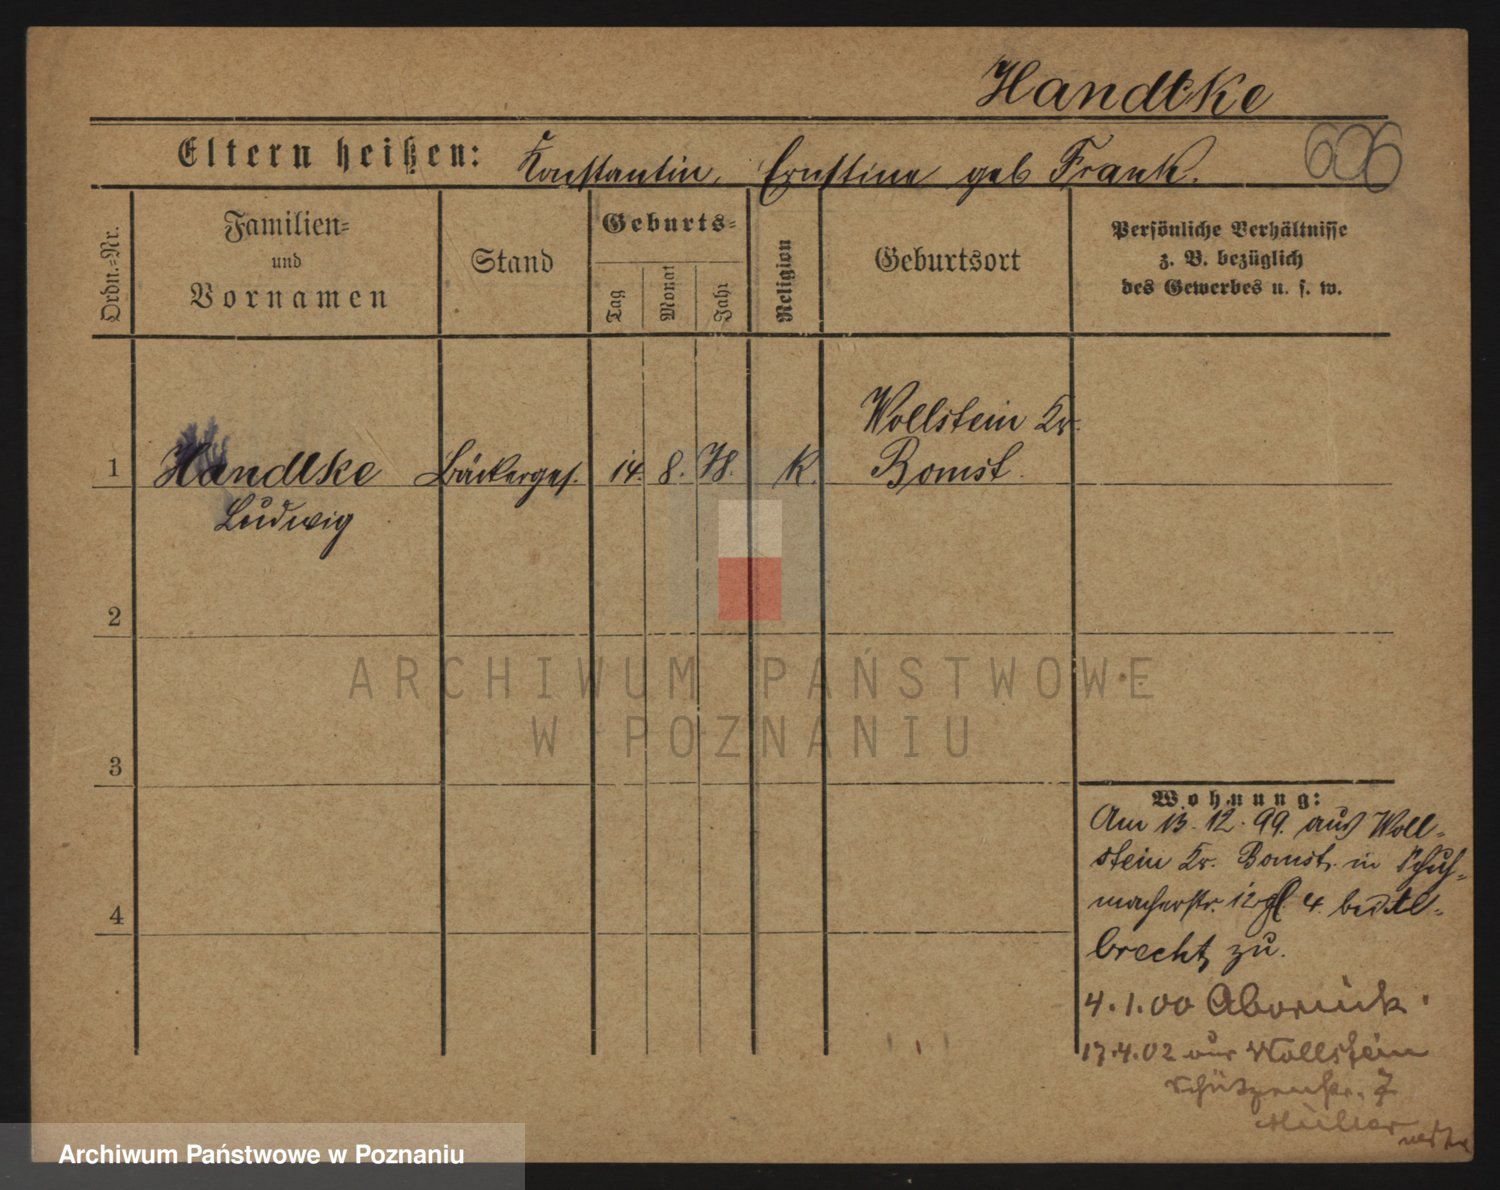 Handtke
Eltern heißen: Konstantin, Ernstine geb Frank.
606
Ordn.-Nr.
Familien-
und
Vornamen
Stand
Geburts-
Tag
Monat
Jahr
Religion
Geburtsort
Persönliche Verhältnisse
z. B. bezüglich
des Gewerbes u. s. w.
1 Handtke Bäckerges. 14. 8. 78. K. Wollstein Kr.
Bomst.
Ludwig
2
ARCHIWUM PAŃSTWOWE
W POZNANIU
3
4
Wohnung:
Am 13.12.99. aus Woll-
stein Kr. Bomst. in Schuh-
macherstr. 12 4. bei Al-
brecht, zu.
4.1.00 Abrück.
17.4.02 aus Wollstein
Schützenstr. 7
Archiwum Państwowe w Poznaniu